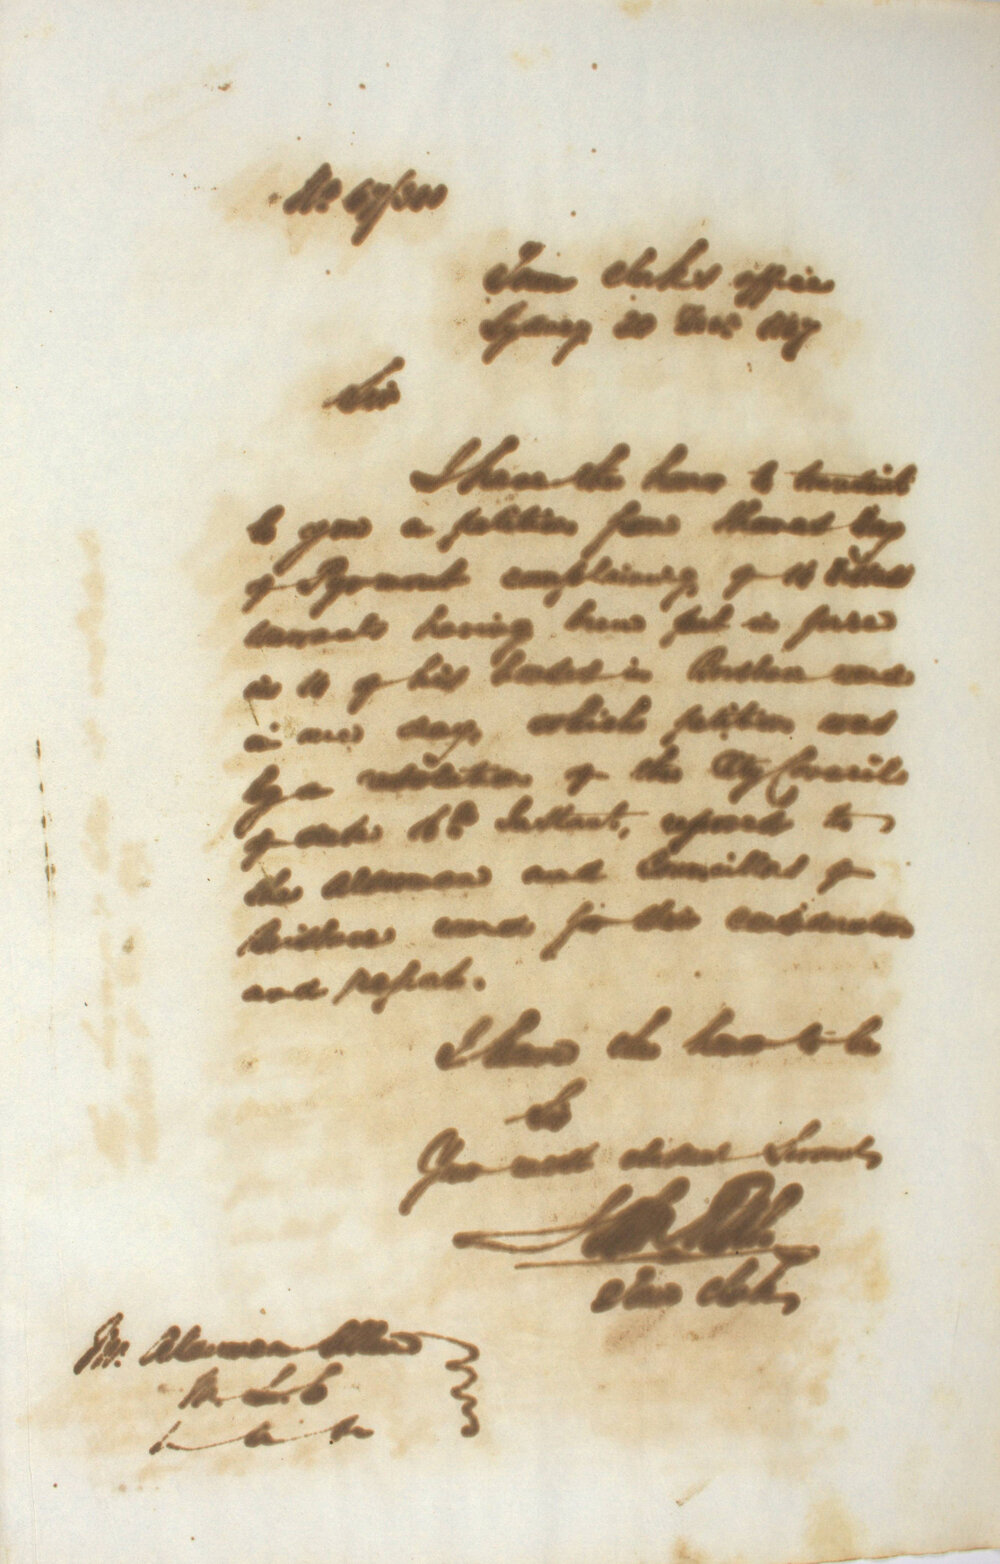 No. 47/300
Town Clerk's Office
Sydney 20 Decr. 1847
Sir
I have the honor to transmit
to you a petition from Thomas
of Pyrmont complaining of 10
having been put in force
in 10 of his houses in Brisbane Ward
in one day, which petition was
by a resolution of the City Council
of date 16th Instant, referred to
the Alderman and Councillors of
Brisbane Ward for their consideration
and report.
I have the honor to be
Sir
Your most obedient Servant
Town Clerk
Mr. Alderman Allen
M. L. C